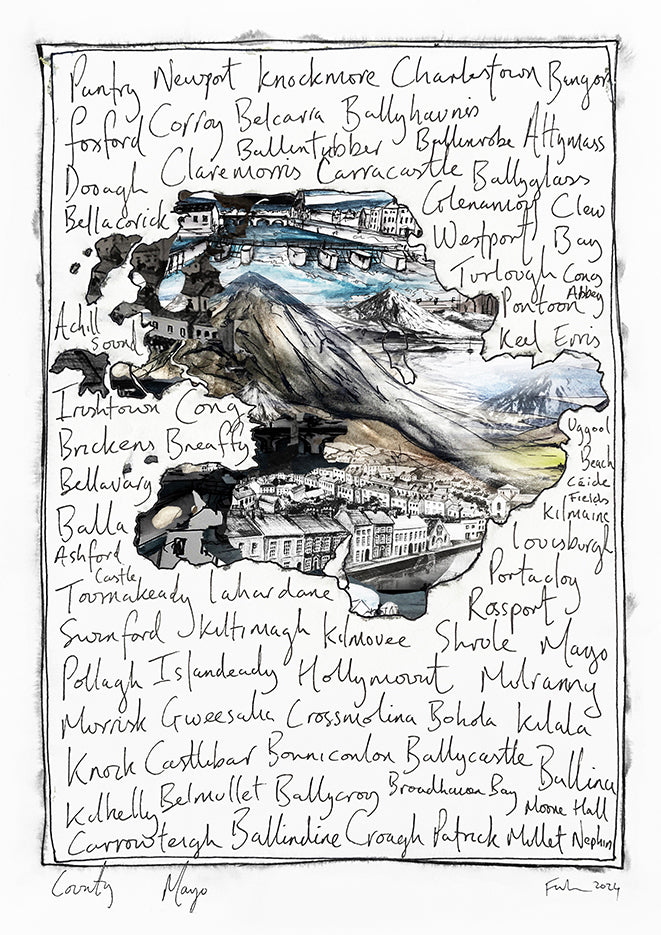 Puntry Newport Knockmore Charlestown Bangor
Foxford Corroy Belcarra Ballyhaunis
Ballintubber Ballinrobe Attymass
Dooagh Claremorris Carracastle Ballyglass
Bellacorick Glenamoy Clew
Westport Bay
Turlough Cong
Pontoon Abbey
Achill
Sound
Keel Erris
Irishtown Cong
Brickens Breaffy
Bellavary
Balla
Ashford
Castle
Uggool
Beach
Céide
Fields
Kilmaine
Louisburgh
Portacloy
Rossport
Tourmakeady Lahardane
Swinford Kiltimagh Kilmovee Shrule Mayo
Pollagh Islandeady Hollymount Mulranny
Murrisk Gweesalia Crossmolina Bohola Kilala
Knock Castlebar Bonniconlon Ballycastle Ballina
Kilkelly Belmullet Ballycroy Broadhaven Bay
Moore Hall
Carrowteigh Ballindine Croagh Patrick Mullet Nephin
County Mayo
2024